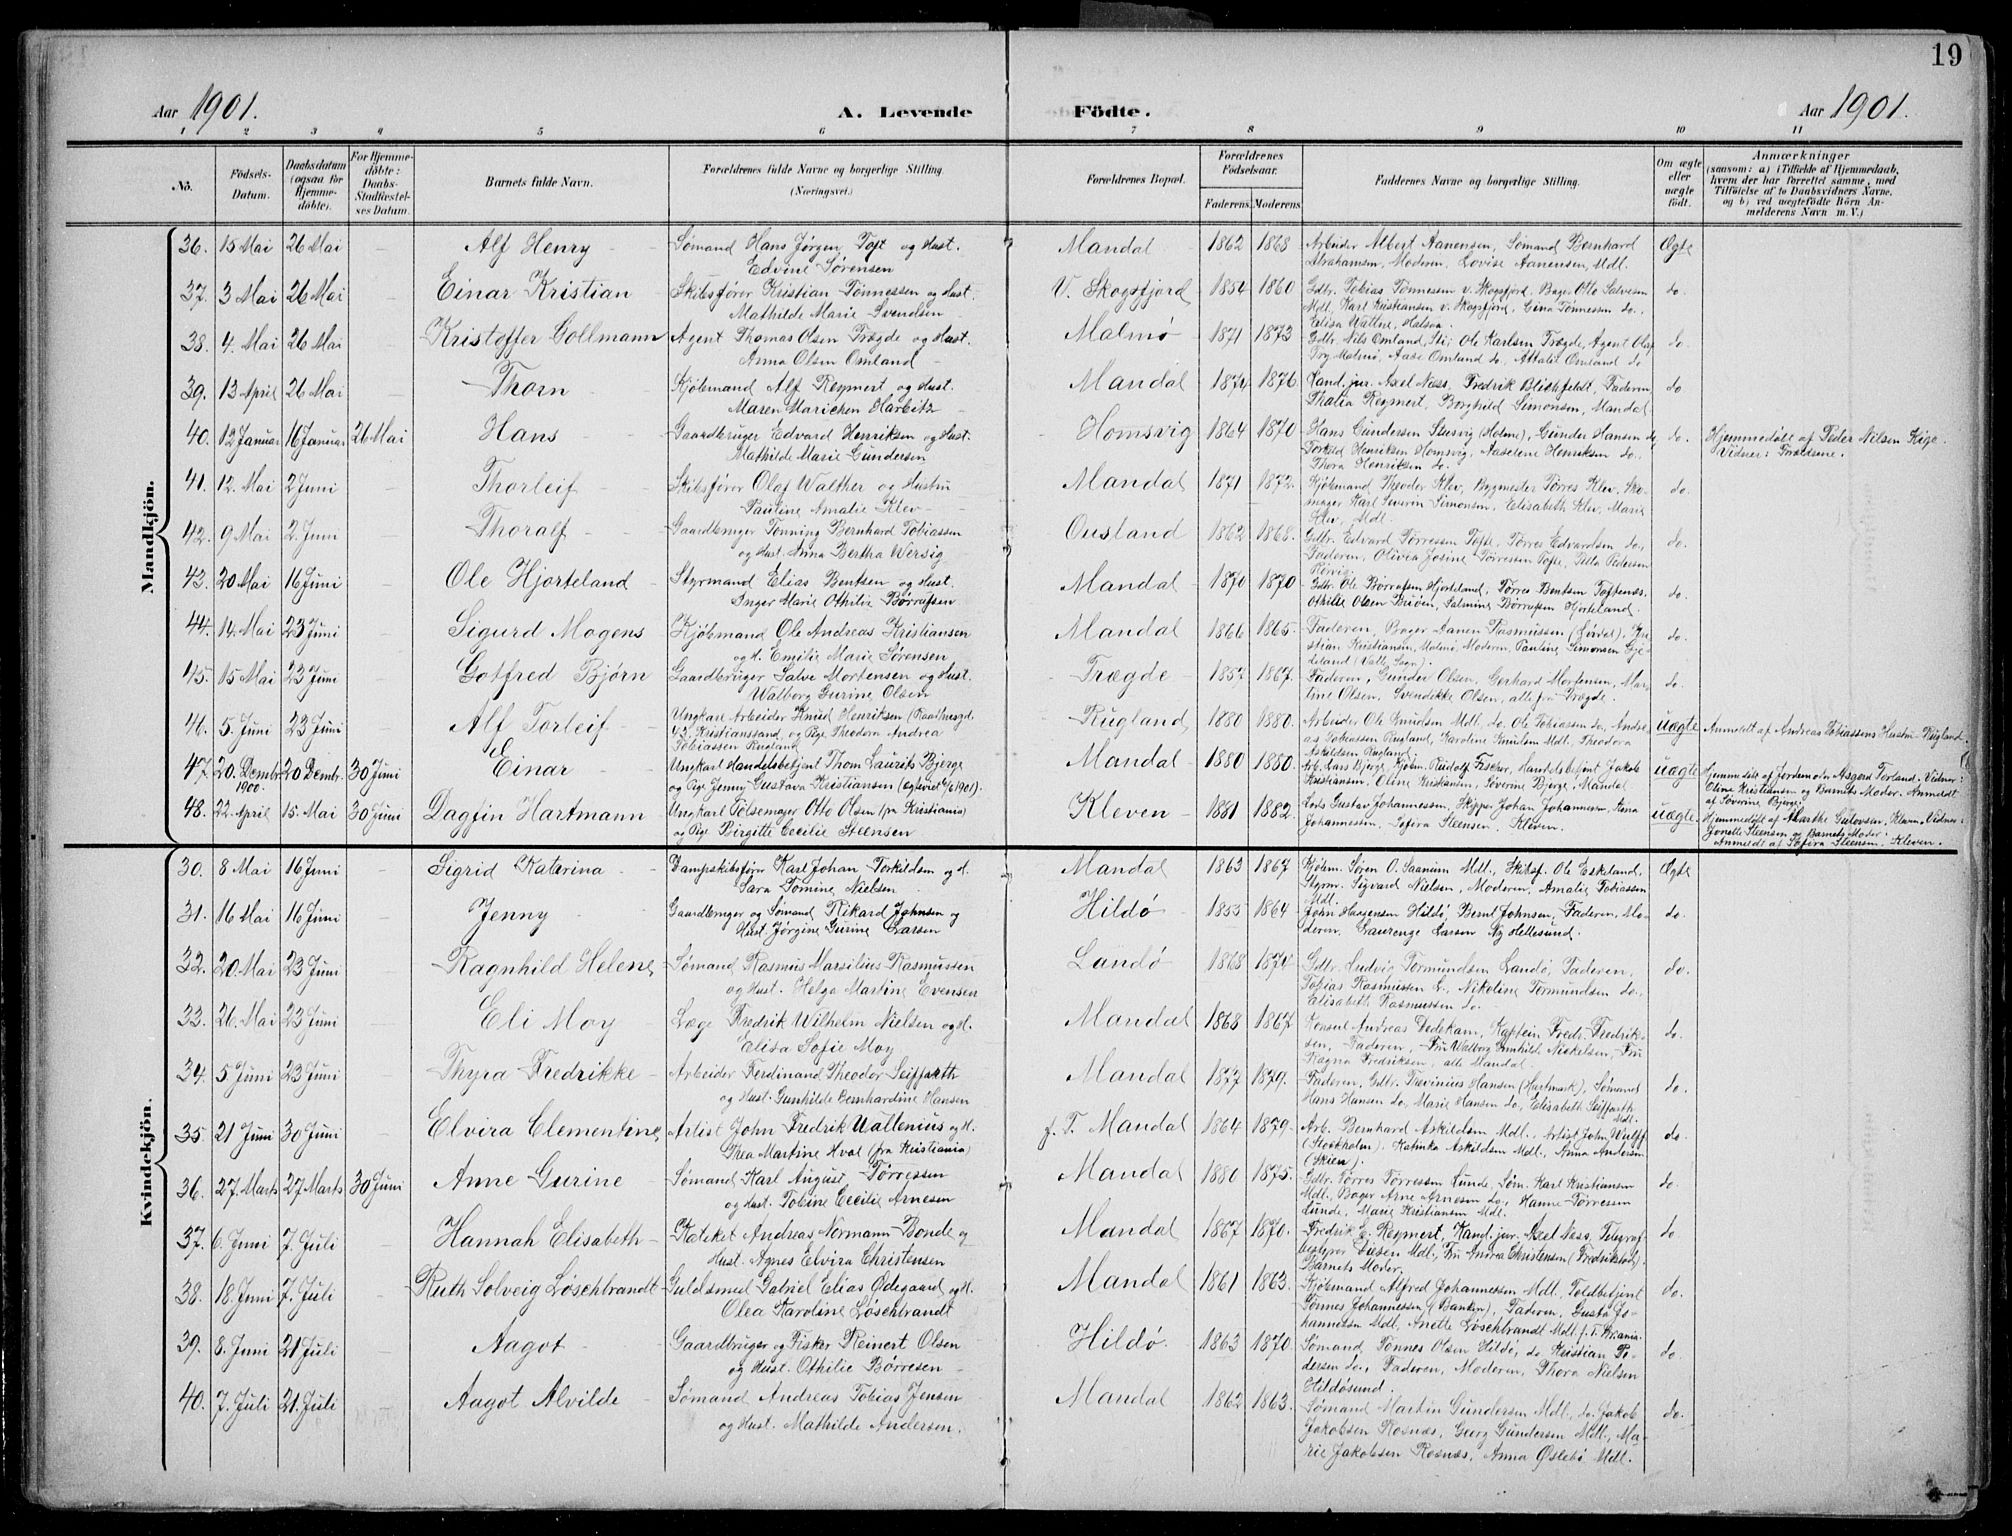 19
Aar 1901. A. Levende Födte. Aar 1901.
1 2 3 4 5 6 7 8 9 10 11
No. Födsels-Datum. Daabsdatum (ogsaa for Hjemmedöbte). For Hjemmedöbte: Daabs-Stadfæstelses Datum. Barnets fulde Navn. Forældrenes fulde Navne og borgerlige Stilling (Næringsvei.) Forældrenes Bopæl. Forældrenes Födselsaar. Faderens. Moderens. Faddernes Navne og borgerlige Stilling. Om ægte eller uægte födt. Anmærkninger (saasom: a) i Tilfælde af Hjemmedaab, hvem der har forrettet samme, med Tilföielse af to Daabsvidners Navne, og b) ved uægtefödte Börn Anmelderens Navn m. V.)
Mandkjön.
36. 15 Mai 26 Mai Alf Henry Sømand Hans Jørgen Toft og Hust. Mandal 1862 1868 Arbeider Albert Aanensen, Sømand Bernhard Ægte
Edvine Sørensen Abrahamsen, Moderen, Lovise Aanensen, Mdl.
37. 3 Mai 26 Mai Einar Kristian Skibsfører Kristian Tønnessen og Hust. V. Skogsfjord 1854 1860 Gdbr. Tobias Tønnessen v. Skogsfjord, Bager Otto Salvesen do.
Mathilde Marie Svendsen Mdl. Karl Kristiansen v. Skogsfjord, Gina Tønnessen do.
Elisa Wattne, Halsaa.
38. 4. Mai 26 Mai Kristoffer Collmann Agent Thomas Olsen Trægde og Hust. Malmø 1871 1873 Gdbr. Nils Omland, Sti; Ole Karlsen Trægde, Agent Olaf do.
Anna Olsen Omland Try Malmø, Aase Omland do, Attalie Omland do
39. 13 April 26 Mai Thorn Kjøbmand Alf Reymert og Hust. Mandal 1874 1876. Kand. jur. Axel Næss, Fredrik Blichfeldt, Faderen do
Maren Marichen Harbitz Thalia Reymert, Borghild Simonsen, Mandal.
40. 12 Januar 16 Januar 26 Mai Hans Gaardbruger Edvard Henriksen og Hust. Homsvig 1864 1870 Hans Gundersen Stusvig (Holme), Gunder Hansen do, do. Hjemmedøbt af Peder Nilsen Kige.
Mathilde Marie Gundersen Torkild Henriksen Homsvig, Naselene Henriksen do. Vidner: Forældrene.
Thora Henriksen do.
41. 12. Mai 2 Juni Thorleif Skibsfører Olaf Walther og Hustru Mandal 1871 1872. Kjøbmand Theodor Klev, Bygmester Tørres Klev, Sko- do.
Pauline Amalie Klev mager Karl Severin Simonsen, Elisabeth Klev, Marie
Klev, Mdl.
42. 9 Mai 2. Juni Thoralf Gaardbruger Tønning Bernhard Tobiassen Ousland 1862 1868. Gdbr. Edvard Tørressen Tofte, Tørres Edvardsen do, do.
og Hust. Anna Bertha Wersig Faderen, Olivea Josine Tørressen Tofte, Pedersen
43. 20 Mai 16 Juni Ole Hjorteland Styrmand Elias Bentsen og Hust. Mandal 1870 1870 Gdbr. Ole Børrufsen Hjorteland, Tørres Bentsen Toftenæs. do.
Inger Marie Othilie Børrufsen Othilie Olsen Buøen, Salmine Børrufsen Hjorteland.
44. 14. Mai 23 Juni Sigurd Mogens Kjøbmand Ole Andreas Kristiansen Mandal 1866 1865. Faderen, Bager Aanen Rasmussen, Kri- do.
og H. Emilie Marie Sørensen stian Kristiansen, Malmø, Moderen, Pauline Simonsen
(Valle Sogn).
45. 15 Mai 23 Juni Gotfred Bjørn Gaardbruger Salve Mortensen og Hust. Trægde 1857 1867. Faderen, Gunder Olsen, Gerhard Mortensen, Mar- do.
Walborg Gurine Olsen tine Olsen, Svendekke Olsen, alle fra Trægde.
46. 5. Juni 23 Juni Alf Torleif Ungkarl Arbeider Knud Henriksen Rugland 1880 1880. Arbeider Ole Knudsen Mdl. do. Ole Tobiassen do, Andre- uægte Anmeldt af Andreas Tobiassens Hustru Rugland.
Kristianssand, og Pige Theodora Andrea as Tobiassen Rugland, Karoline Knudsen Mdl. Theodora
Tobiassen Rugland Askildsen Rugland.
47. 20. Dembr 1900. 20 Dembr. 30 Juni Einar Ungkarl Handelsbetjent Thom Laurits Bjerge Mandal 1880 1880. Arb. Lars Bjerge, Kjøbm. Rudolf Fischer, Handelsbetjent Jakob uægte Hjemmedøbt af Jordemoder Asgerd Torland. Vidner:
og Pige Jenny Gustava Kristiansen (egteviet 6/6 1901). Kristiansen, Oline Kristiansen, Severine Bjerge, Mandal Oline Kristiansen og Barnets Moder. Anmeldt
af Severine Bjerge.
48. 22. April 15. Mai 30 Juni Dagfin Hartmann Ungkarl Pølsemager Otto Olsen (fra Kristiania) Kleven 1881 1882. Lods Gustav Johannessen, Skipper Johan Johannessen, Anna uægte. Hjemmedøbt af Marthe Gulovsen, Kleven. Vidner:
og Pige Birgitte Cecilie Steensen Johannessen, Sofira Steensen, Kleven. Jonette Steensen og Barnets Moder.
Anmeldt af Sofira Steensen, Kleven.
Kvindekjön.
30. 8 Mai 16 Juni Sigrid Katarina Dampskibsfører Karl Johan Torkildsen og H. Mandal 1863 1867 Kjøbm. Søren O. Saanum Mdl., Skibsf. Ole Eskeland, Ægte
Sara Tomine Nielsen Styrm. Sigvard Nielsen, Moderen, Amalie Tobiassen
Mdl.
31. 16 Mai 16 Juni Jenny Gaardbruger og Sømand Rikard Johnsen og Hildø 1855 1864 John Haagensen Hildø, Bernt Johnsen, Faderen, Mo- do.
Hust. Jørgine Gurine Larsen deren, Laurenze Larsen Ny Hellesund.
32. 20. Mai 23 Juni Ragnhild Helene Sømand Rasmus Marsilius Rasmussen Landø 1868 1874 Gdbr. Ludvig Tormundsen Landø, Faderen, do.
og Hust. Helga Martine Evensen Tobias Rasmussen L., Nikoline Tormundsen do.,
Elisabeth Rasmussen do.
33. 26. Mai 23 Juni Eli Moy Læge Fredrik Wilhelm Nielsen og H. Mandal 1868 1867 Konsul Andreas Dedekam, Kaptein Fredr. Fredrik- do.
Elisa Sofie Moy sen, Faderen, Fru Walborg Gunhild Nickelsen, Fru
Ragna Fredriksen, alle Mandal
34. 5 Juni 23 Juni Thyra Fredrikke Arbeider Ferdinand Theodor Seiffarth Mandal 1877 1879. Faderen, Gdbr. Trevinius Hansen (Hartmark), Sømand do.
og Hust. Gunhilde Bernhardine Hansen Hans Hansen do, Marie Hansen do, Elisabeth Seiffarth
Mdl.
35. 21 Juni 30 Juni Elvira Clementine Artist John Fredrik Wallenius og H. f. T. Mandal 1864 1879. Arb. Bernhard Askildsen Mdl., Artist John Wulff do.
Thea Martine Hval (fra Kristiania) (Stockholm). Kathinka Askildsen Mdl., Anna Andersen
(Skien).
36. 27 Marts 27 Marts 30 Juni Anne Gurine Sømand Karl August Tørressen Mandal 1880 1875. Gdbr. Tørres Tørressen Lunde, Søm. Karl Kristiansen do.
og Hust. Tobine Cecilie Arnesen Mdl., Bager Arne Arnesen do, Hanne Tørressen
Lunde, Marie Kristiansen Mdl.
37. 6. Juni 7. Juli Hannah Elisabeth Kateket Andreas Normann Bonde og Mandal 1867 1870. Fredrik E. Reymert, Kand. jur. Axel Næss, Telegraf- do
Hust. Agnes Elvira Christensen bestyrer Mdl., Fru Andrea Christensen (Fredrikstad),
Barnets Moder.
38. 18. Juni 7. Juli Ruth Solveig Løschbrandt Guldsmed Gabriel Elias Ødegaard og H. Mandal 1861 1863. Kjøbmand Alfred Johannessen Mdl., Toldbetjent do.
Olea Karoline Løschbrandt Tønnes Johannessen (Banken), Faderen, Gusta Jo-
hannessen Mdl., Anette Løschbrandt Mdl. f. T. Kr.ania.
39. 8. Juni 21 Juli Aagot Gaardbruger og Fisker Reinert Olsen Hildø. 1863 1870. Sømand Tønnes Olsen Hildø, do. Kristian Pe- do.
og Hust. Othilie Børresen dersen do., Faderen, Moderen, Thora Nielsen
Hildøsund.
40. 7. Juli 21. Juli Aagot Alvilde Sømand Andreas Tobias Jensen Mandal 1862 1863. Sømand Martin Gundersen Mdl., do. Jakob do.
og Hust. Mathilde Andersen. Jakobsen Rosnæs, Georg Gundersen Mdl., Ma-
rie Jakobsen Rosnæs, Anna Øslebø Mdl.